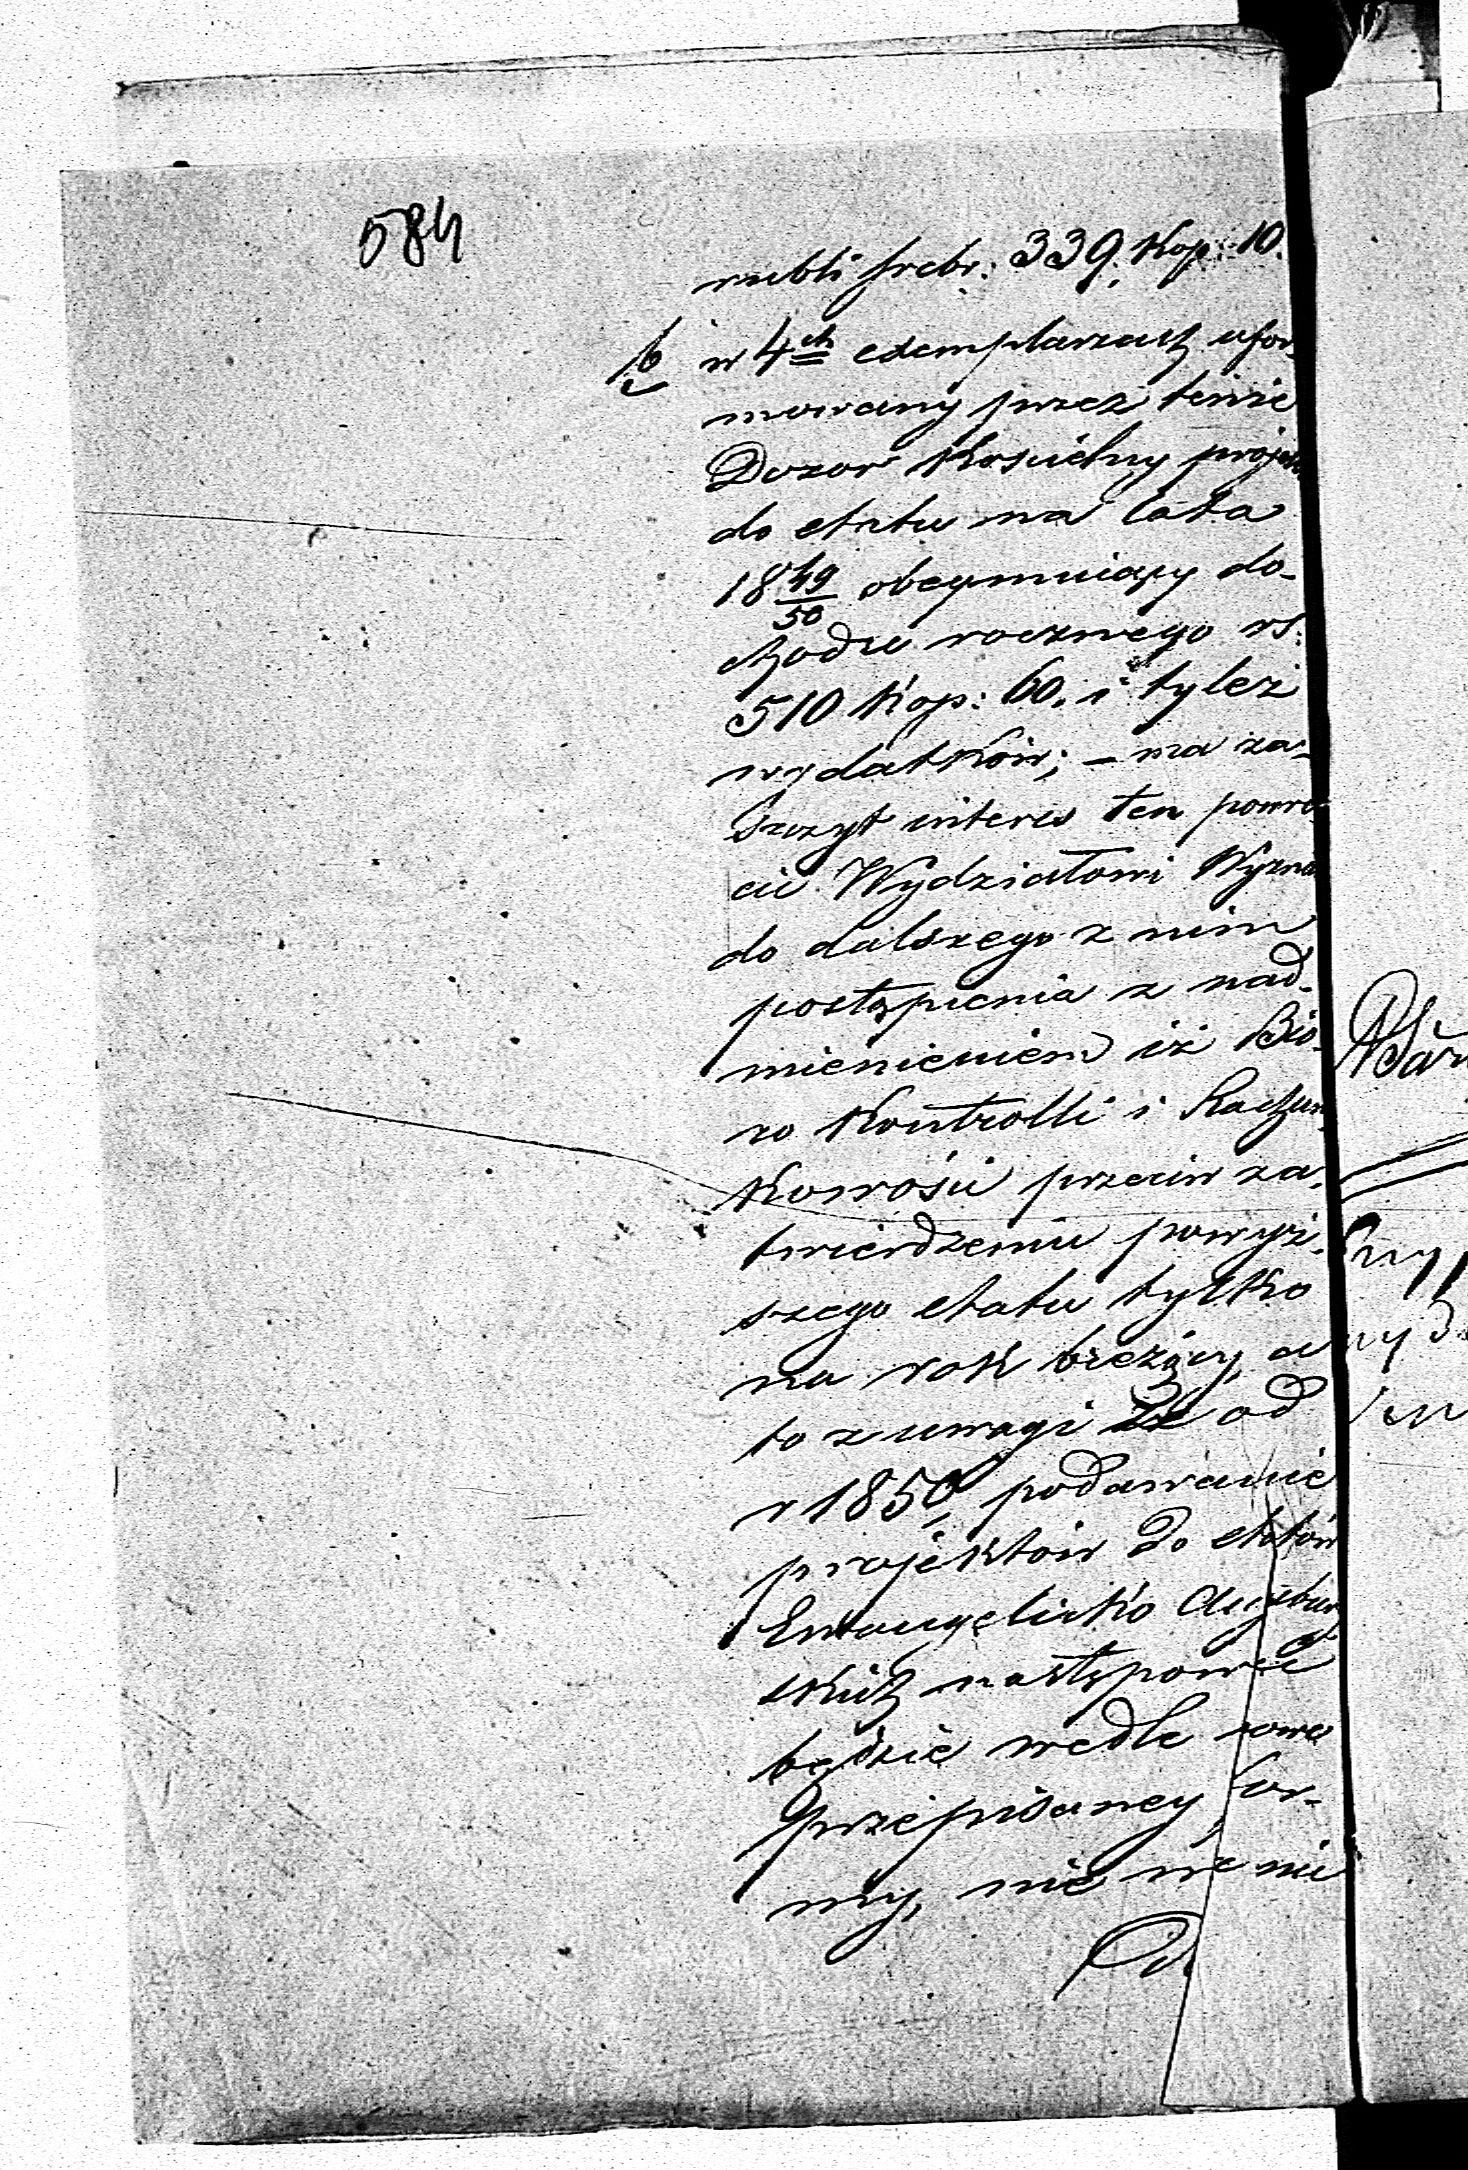 584
rubli srebr: 339. Kop: 10.
b w 4ch exemplarzach ufor-
mowany przez tenże
Dozor Kościelny projekt
do etatu na lata
18 49/50 obeymuiący do-
chodu rocznego rs:
510 Kop: 60. i tyleż
wydatków; – ma za-
szczyt interes ten powró-
cić Wydziałowi Wyznań
do dalszego z nim
postąpienia z nad-
mienieniem iż Bió-
ro Kontrolli i Rachun-
kowości przeciw za-
twierdzeniu powyż-
szego etatu tylko
na rok bieżący, a
to z uwagi że od
r 1850, podawanie
projektów do etatów
Ewangelicko Augsbur
skich następować
będzie wedle nowo
przepisaney for-
my, nic nie